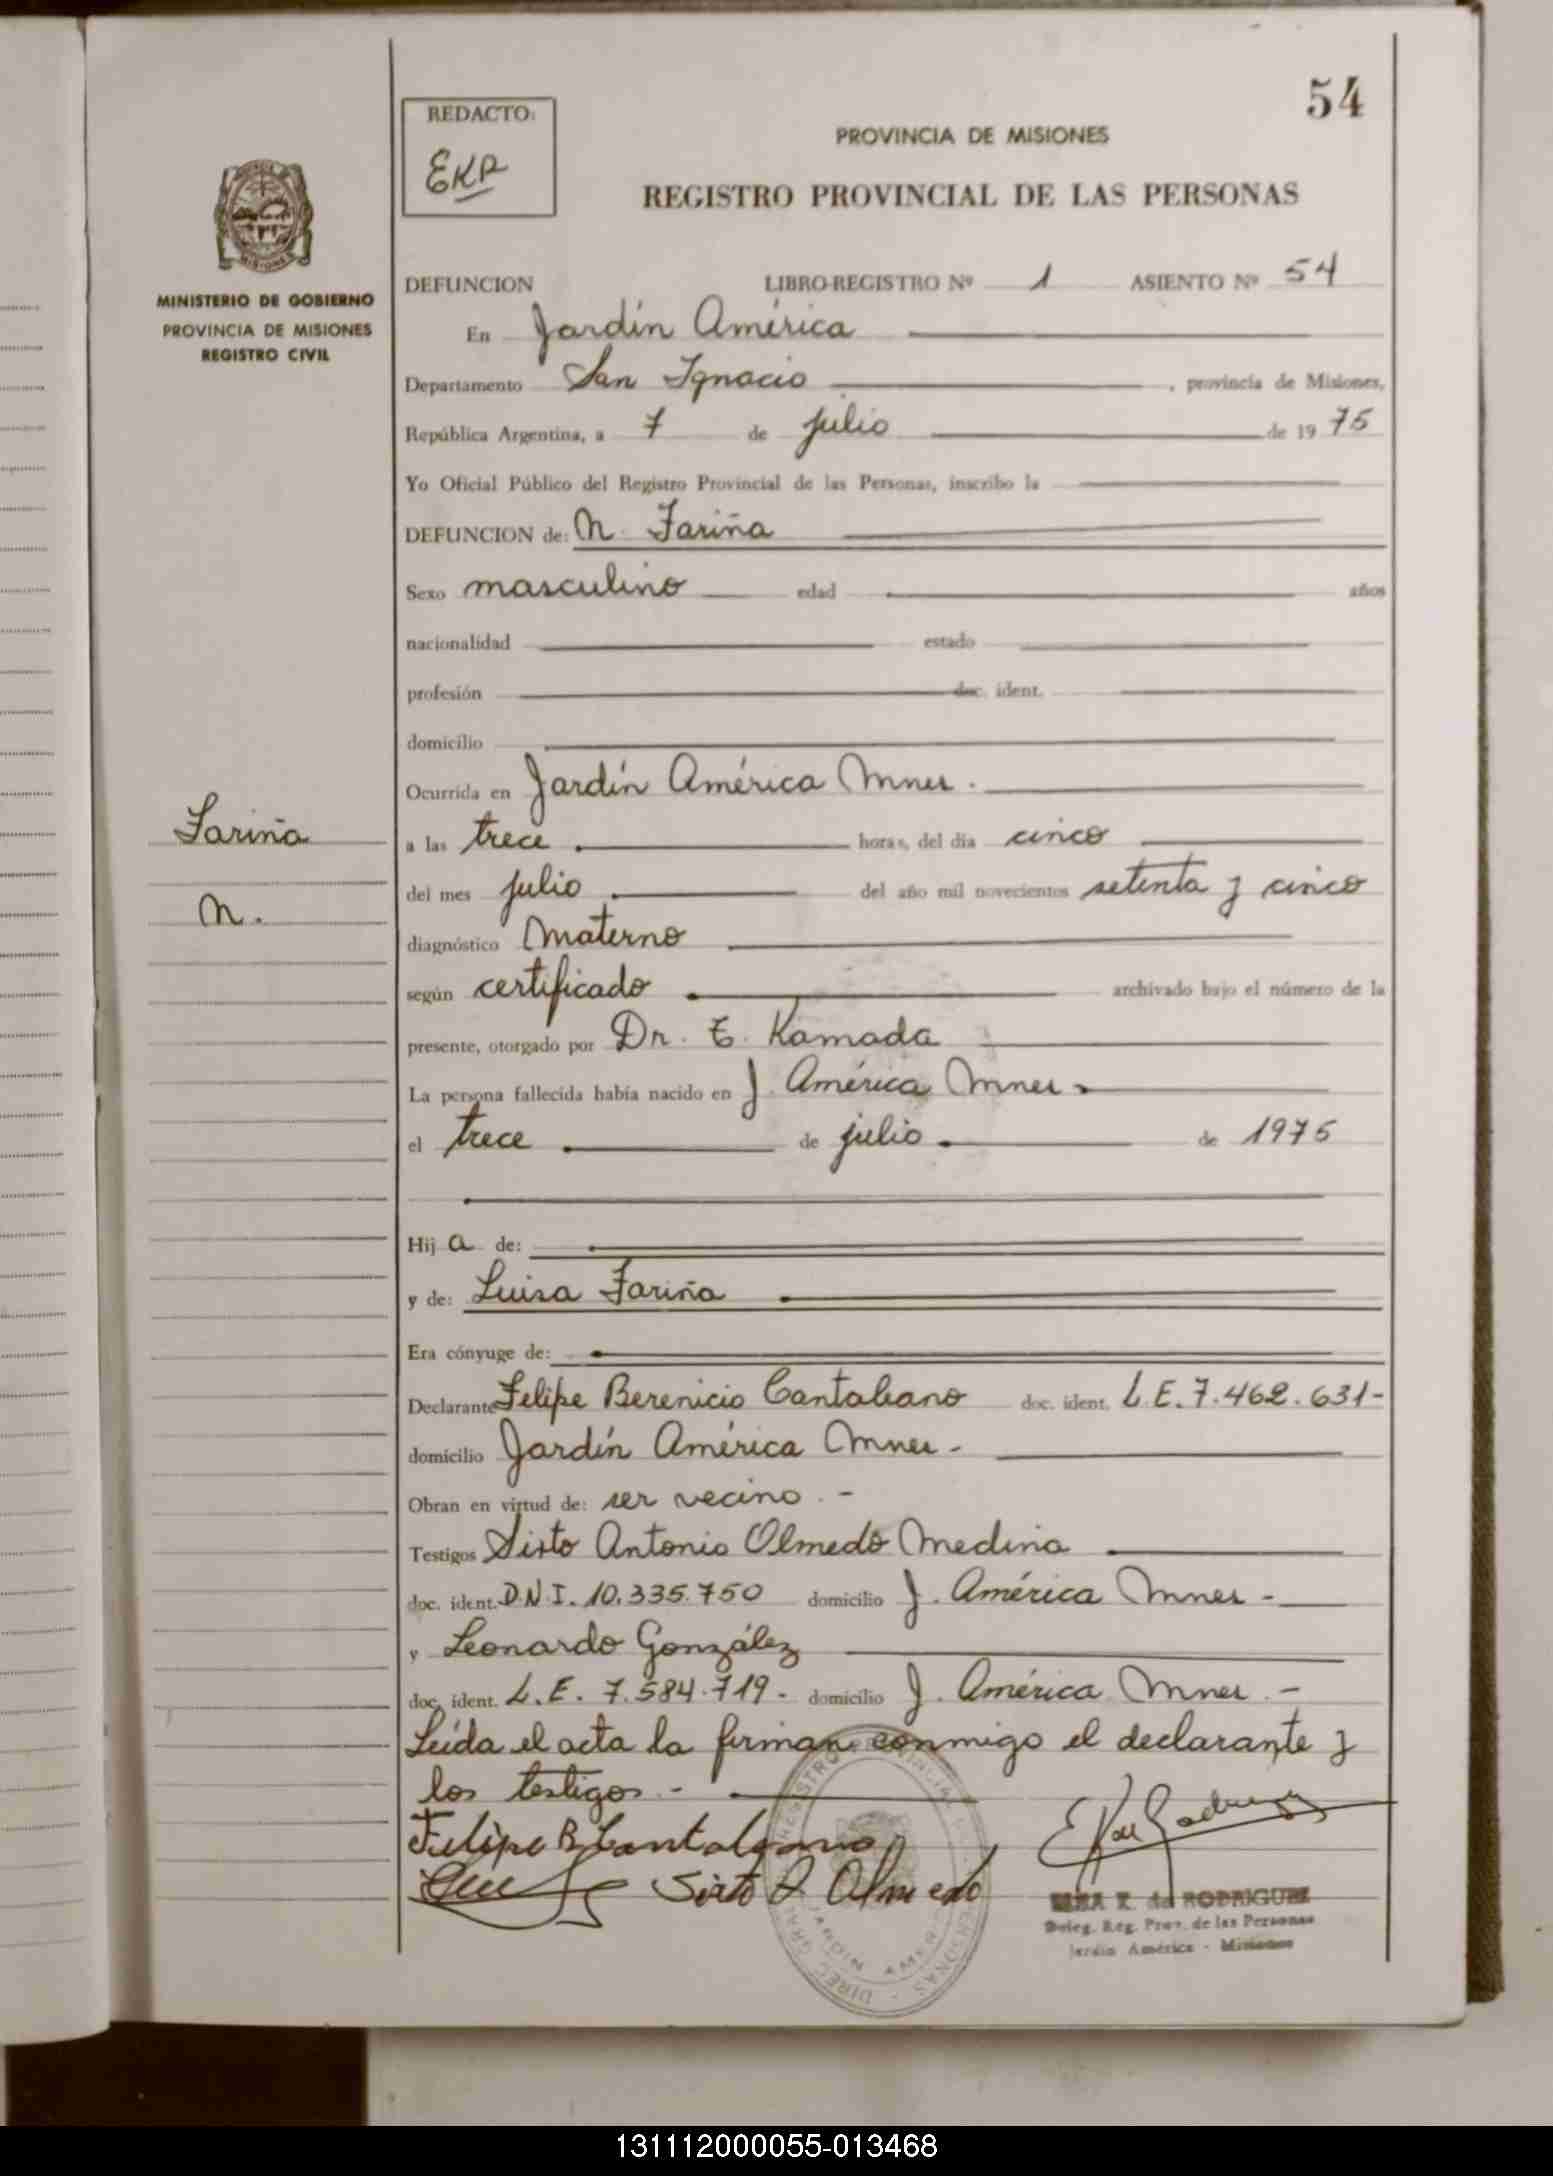 54
REDACTO:
EKR
PROVINCIA DE MISIONES
REGISTRO PROVINCIAL DE LAS PERSONAS
MINISTERIO DE GOBIERNO
PROVINCIA DE MISIONES
REGISTRO CIVIL
DEFUNCION LIBRO-REGISTRO Nº 1 ASIENTO Nº 54
En Jardín América
Departamento San Ignacio, provincia de Misiones,
República Argentina, a 7 de julio de 1975
Yo Oficial Público del Registro Provincial de las Personas, inscribo la
DEFUNCION de: N. Fariña
Sexo masculino edad años
nacionalidad estado
profesión doc. ident.
domicilio
Ocurrida en Jardín América Mnes.
Fariña
N.
a las trece horas, del día cinco
del mes julio del año mil novecientos setenta y cinco
diagnóstico Materno
según certificado archivado bajo el número de la
presente, otorgado por Dr. E. Kamada
La persona fallecida había nacido en J. América Mnes
el trece de julio de 1975
Hija de:
y de: Luisa Fariña
Era cónyuge de:
Declarante Felipe Berenicio Cantaliano doc. ident. L.E. 7.462.631-
domicilio Jardín América Mnes-
Obran en virtud de: ser vecino.-
Testigos Sixto Antonio Olmedo Medina
doc. ident. D.N.I. 10.335.750 domicilio J. América Mnes-
y Leonardo González
doc. ident. L.E. 7.584.719- domicilio J. América Mnes.-
Leída el acta la firman conmigo el declarante y
los testigos.-
Felipe B
Sixto A Olmedo
K. de RODRIGUEZ
Deleg. Reg. Prov. de las Personas
Jardín América - Misiones
JARDIN AMERICA
131112000055-013468